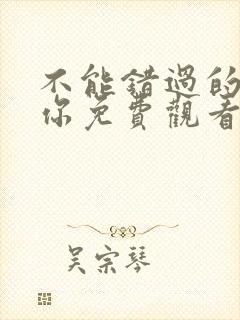 不能錯過的
你免費觀看
吴宗琴